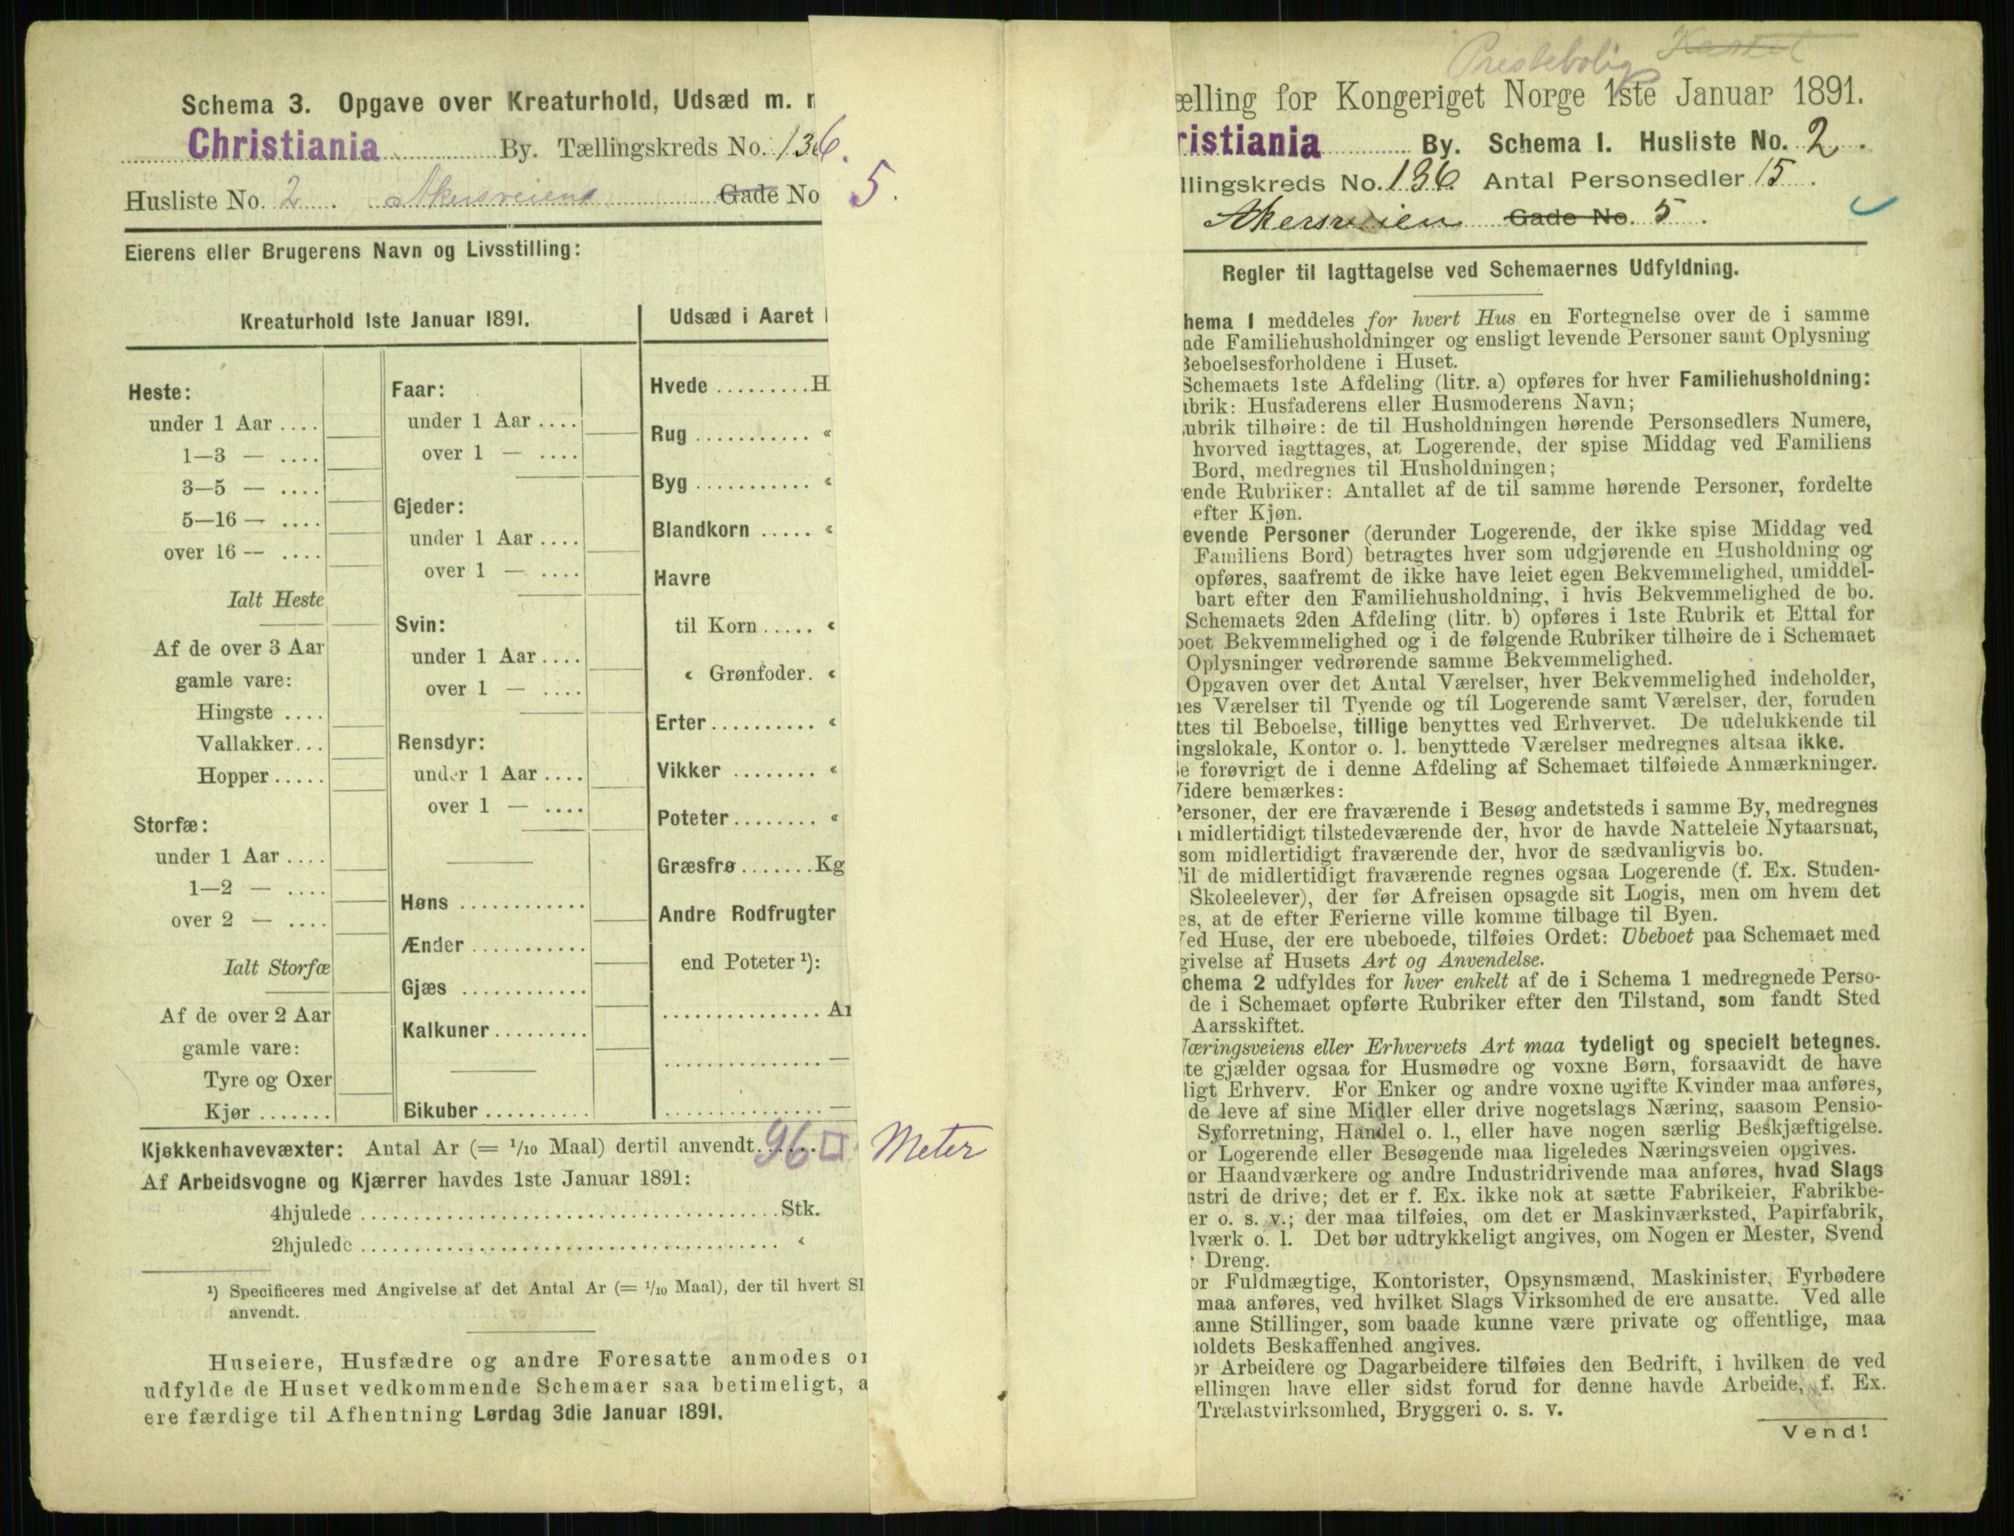 Schema 3. Opgave over Kreaturhold, Udsæd m.
Christiania By. Tællingskreds No. 136.
Husliste No. 2. Akersveien Gade No 5.
Eierens eller Brugerens Navn og Livsstilling:
Kreaturhold 1ste Januar 1891.
Heste:
under 1 Aar ....
1—3 — ....
3—5 — ....
5—16 — ....
over 16 — ....
Ialt Heste
Af de over 3 Aar
gamle vare:
Hingste ....
Vallakker...
Hopper .....
Storfæ:
under 1 Aar ....
1—2 — ....
over 2 — ....
Ialt Storfæ
Af de over 2 Aar
gamle vare:
Tyre og Oxer
Kjør .......
Faar:
under 1 Aar ....
over 1 — ....
Gjeder:
under 1 Aar ....
over 1 — ....
Svin:
under 1 Aar ....
over 1 — ....
Rensdyr:
under 1 Aar ....
over 1 — ....
Høns ............
Ænder ...........
Gjæs ............
Kalkuner.........
Bikuber ..........
Udsæd i Aaret
Hvede .........H
Rug ........... «
Byg ........... «
Blandkorn ..... «
Havre
til Korn ..... «
« Grønfoder. «
Erter.......... «
Vikker ........ «
Poteter........ «
Græsfrø .......Kg
Andre Rodfrugter
end Poteter ¹):
............... Ar
............... —
............... —
Kjøkkenhavevæxter: Antal Ar (= 1/10 Maal) dertil anvendt. 96 □ Meter
Af Arbeidsvogne og Kjærrer havdes 1ste Januar 1891:
4hjulede ....................................Stk.
2hjulede .................................... «
¹) Specificeres med Angivelse af det Antal Ar (= 1/10 Maal), der til hvert Sl
anvendt.
Huseiere, Husfædre og andre Foresatte anmodes o
udfylde de Huset vedkommende Schemaer saa betimeligt, a
ere færdige til Afhentning Lørdag 3die Januar 1891.
Prestebolig Kastel
ælling for Kongeriget Norge 1ste Januar 1891.
ristiania By. Schema 1. Husliste No. 2.
llingskreds No. 136 Antal Personsedler 15.
Akersveien Gade No. 5.
Regler til Iagttagelse ved Schemaernes Udfyldning.
hema 1 meddeles for hvert Hus en Fortegnelse over de i samme
nde Familiehusholdninger og ensligt levende Personer samt Oplysning
Beboelsesforholdene i Huset.
Schemaets 1ste Afdeling (litr. a) opføres for hver Familiehusholdning:
ubrik: Husfaderens eller Husmoderens Navn;
ubrik tilhøire: de til Husholdningen hørende Personsedlers Numere,
hvorved iagttages, at Logerende, der spise Middag ved Familiens
Bord, medregnes til Husholdningen;
ende Rubriker: Antallet af de til samme hørende Personer, fordelte
efter Kjøn.
evende Personer (derunder Logerende, der ikke spise Middag ved
Familiens Bord) betragtes hver som udgjørende en Husholdning og
opføres, saafremt de ikke have leiet egen Bekvemmelighed, umiddel-
bart efter den Familiehusholdning, i hvis Bekvemmelighed de bo.
Schemaets 2den Afdeling (litr. b) opføres i 1ste Rubrik et Ettal for
boet Bekvemmelighed og i de følgende Rubriker tilhøire de i Schemaet
Oplysninger vedrørende samme Bekvemmelighed.
Opgaven over det Antal Værelser, hver Bekvemmelighed indeholder,
nes Værelser til Tyende og til Logerende samt Værelser, der, foruden
ttes til Beboelse, tillige benyttes ved Erhvervet. De udelukkende til
ingslokale, Kontor o. l. benyttede Værelser medregnes altsaa ikke.
e forøvrigt de i denne Afdeling af Schemaet tilføiede Anmærkninger.
Videre bemærkes:
Personer, der ere fraværende i Besøg andetsteds i samme By, medregnes
midlertidigt tilstedeværende der, hvor de havde Natteleie Nytaarsnat,
som midlertidigt fraværende der, hvor de sædvanligvis bo.
Til de midlertidigt fraværende regnes ogsaa Logerende (f. Ex. Studen-
Skoleelever), der før Afreisen opsagde sit Logis, men om hvem det
es, at de efter Ferierne ville komme tilbage til Byen.
Ved Huse, der ere ubeboede, tilføies Ordet: Ubeboet paa Schemaet med
givelse af Husets Art og Anvendelse.
chema 2 udfyldes for hver enkelt af de i Schema 1 medregnede Perso-
de i Schemaet opførte Rubriker efter den Tilstand, som fandt Sted
Aarsskiftet.
Næringsveiens eller Erhvervets Art maa tydeligt og specielt betegnes.
te gjælder ogsaa for Husmødre og voxne Børn, forsaavidt de have
ligt Erhverv. For Enker og andre voxne ugifte Kvinder maa anføres,
de leve af sine Midler eller drive nogetslags Næring, saasom Pensio-
Syforretning, Handel o. l., eller have nogen særlig Beskjæftigelse.
or Logerende eller Besøgende maa ligeledes Næringsveien opgives.
or Haandværkere og andre Industridrivende maa anføres, hvad Slags
ustri de drive; det er f. Ex. ikke nok at sætte Fabrikeier, Fabrikbe-
er o. s. v.; der maa tilføies, om det er Maskinværksted, Papirfabrik,
lværk o. l. Det bør udtrykkeligt angives, om Nogen er Mester, Svend
Dreng.
or Fuldmægtige, Kontorister, Opsynsmænd, Maskinister, Fyrbødere
maa anføres, ved hvilket Slags Virksomhed de ere ansatte. Ved alle
anne Stillinger, som baade kunne være private og offentlige, maa
holdets Beskaffenhed angives.
or Arbeidere og Dagarbeidere tilføies den Bedrift, i hvilken de ved
ellingen have eller sidst forud for denne havde Arbeide, f. Ex.
Trælastvirksomhed, Bryggeri o. s. v.
Vend!